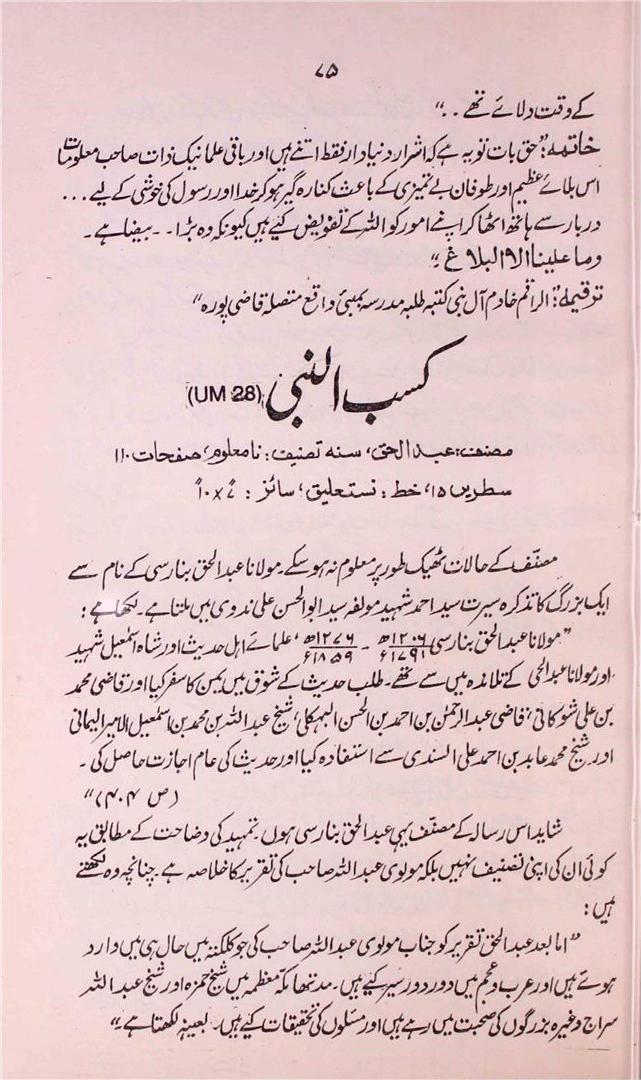 ۷۵
کے وقت دلائے تھے۔۔"
خاتمہ: "حق بات تو یہ ہے کہ اشرار دنیا دار فقط اتنے ہیں اور باقی علما نیک ذات صاحب معلومات
اس بلائے عظیم اور طوفان بے تمیزی کے باعث کنارہ گیر ہو کر خدا اور رسول کی خوشی کے لیے ...
دربار سے ہاتھ اٹھا کر اپنے امور کو اللہ کے تفویض کیے ہیں کیونکہ وہ بڑا۔۔ بیضا ہے۔
وما علینا الا البلاغ۔"
ترقیمہ: "الراقم خادم آل نبی کتبہ طلبہ مدرسہ بمبئی واقع متصلہ قاضی پورہ"
کسب النبی (UM 28)
مصنف: عبدالحق، سنہ تصنیف: نامعلوم، صفحات ۱۱۰
سطریں ۱۵، خط: نستعلیق، سائز: ۷" x ۱۰"
مصنّف کے حالات ٹھیک طور پر معلوم نہ ہو سکے۔ مولانا عبدالحق بنارسی کے نام سے
ایک بزرگ کا تذکرہ سیرت سید احمد شہید مولفہ سید ابوالحسن علی ندوی میں ملتا ہے۔ لکھا ہے:
"مولانا عبدالحق بنارسی ۱۲۰۶ھ / ۱۷۹۱ء - ۱۲۷۶ھ / ۱۸۵۹ء، علمائے اہل حدیث اور شاہ اسمٰعیل شہید
اور مولانا عبدالحی کے تلامذہ میں سے تھے۔ طلب حدیث کے شوق میں یمن کا سفر کیا اور قاضی محمد
بن علی شوکانی، قاضی عبدالرحمٰن بن احمد بن الحسن البہکلی، شیخ عبداللہ بن محمد بن اسمٰعیل الامیر الیمانی
اور شیخ محمد عابد بن احمد علی السندی سے استفادہ کیا اور حدیث کی عام اجازت حاصل کی۔
(ص ۴۰۴)"
شاید اس رسالہ کے مصنّف یہی عبدالحق بنارسی ہوں۔ تمہید کی وضاحت کے مطابق یہ
کوئی ان کی اپنی تصنیف نہیں بلکہ مولوی عبداللہ صاحب کی تقریر کا خلاصہ ہے۔ چنانچہ وہ لکھتے
ہیں:
"اما بعد عبدالحق تقریر کو جناب مولوی عبداللہ صاحب کی جو کلکتہ میں حال ہی میں وارد
ہوئے ہیں اور عرب و عجم میں دور دور سیر کیے ہیں۔ مدتہا مکہ معظمہ میں شیخ حمزہ اور شیخ عبداللہ
سراج وغیرہ بزرگوں کی صحبت میں رہے ہیں اور مسئلوں کی تحقیقات کیے ہیں۔ بعینہٖ لکھتا ہے۔"